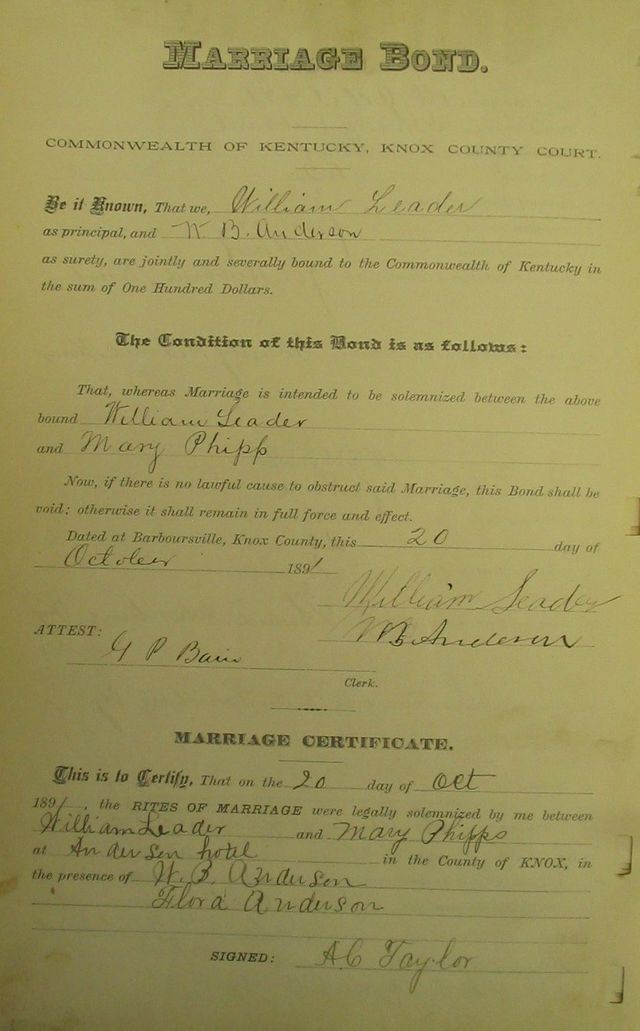 MARRIAGE BOND.
COMMONWEALTH OF KENTUCKY, KNOX COUNTY COURT.
Be it Known, That we, William Leader
as principal, and W B. Anderson
as surety, are jointly and severally bound to the Commonwealth of Kentucky in
the sum of One Hundred Dollars.
The Condition of this Bond is as follows:
That, whereas Marriage is intended to be solemnized between the above
bound William Leader
and Mary Phipp
Now, if there is no lawful cause to obstruct said Marriage, this Bond shall be
void; otherwise it shall remain in full force and effect.
Dated at Barboursville, Knox County, this 20 day of
October 1891
William Leader
WB Anderson
ATTEST:
G P Bain
Clerk.
MARRIAGE CERTIFICATE.
This is to Certify, That on the 20 day of Oct
1891, the RITES OF MARRIAGE were legally solemnized by me between
William Leader and Mary Phipps
at Andersen hotel in the County of KNOX, in
the presence of W. B. Anderson
Flora Anderson
SIGNED: A C Taylor